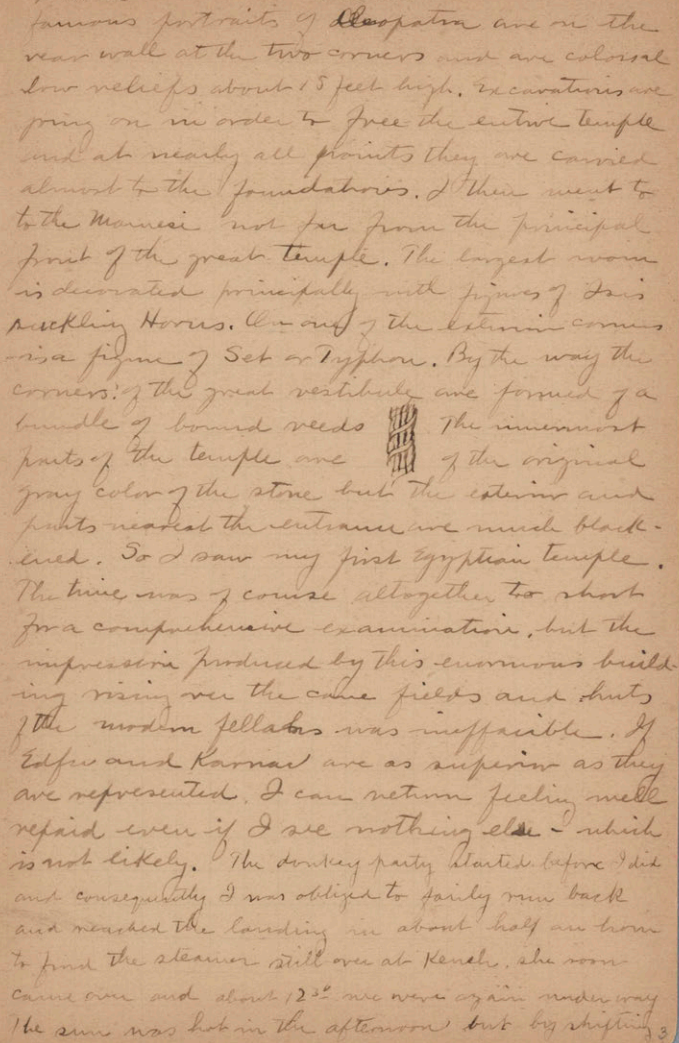 famous portraits of Cleopatra are on the
rear wall at the two corners and are colossal
low reliefs about 15 feet high. Excavations are
going on in order to free the entire temple
and at nearly all points they are carried
almost to the foundations. I then went to
to the Mamesi not far from the principal
front of the great temple. The largest room
is decorated principally with figures of Isis
suckling Horus. On one of the exterior corners
is a figure of Set or Typhon. By the way the
corners of the great vestibule are formed of a
bundle of bound reeds The innermost
parts of the temple are of the original
gray color of the stone but the exterior and
parts nearest the entrance are much black-
ened. So I saw my first Egyptian temple.
The time was of course altogether too short
for a comprehensive examination, but the
impression produced by this enormous build-
ing rising over the cane fields and huts
of the modern fellahs was ineffacible. If
Edfu and Karnac are as superior as they
are represented, I can return feeling well
repaid even if I see nothing else - which
is not likely. The donkey party started before I did
and consequently I was obliged to fairly run back
and reached the landing in about half an hour
to find the steamer still over at Keneh. she soon
came over and about 12 30 we were again under way
The sun was hot in the afternoon but by shifting
3